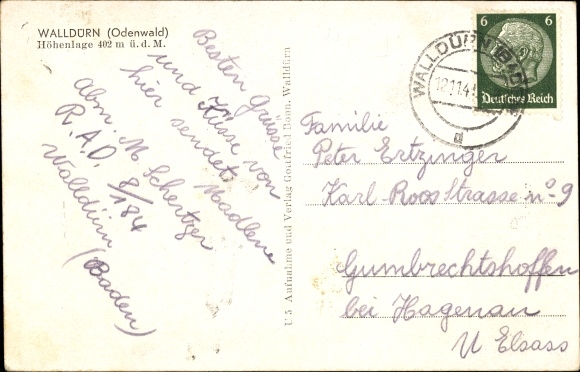 WALLDÜRN (Odenwald)
Höhenlage 402 m ü. d. M.
Besten Grüsse
und Küsse von
hier sendet Madlene
abm. M Schertzer
R.A.D. 8/184
Walldürn
(Baden)
U 5 Aufnahme und Verlag Gottfried Bonn, Walldürn
6 6
Deutsches Reich
WALLDÜRN (BAD)
12.11.4
d
Familie
Peter Ertzinger
Karl Roos Strasse no 9
Gumbrechtshoffen
bei Hagenau
U Elsass